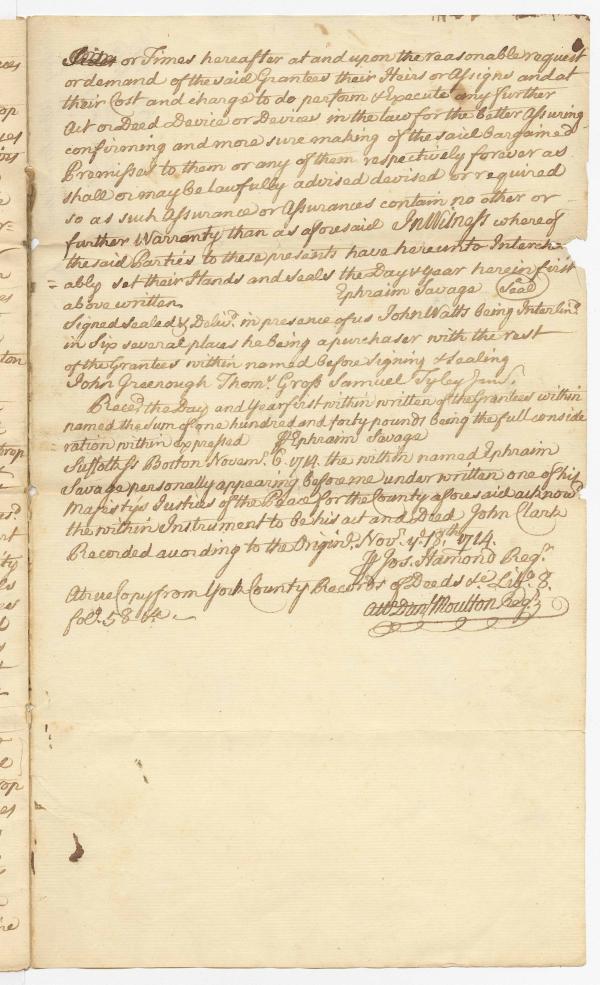 or Times hereafter at and upon the reasonable request
or demand of the said Grantees their Heirs or Assigns and at
their Cost and charge to do perform & Execute any further
Act or Deed Device or Devices in the law for the better Assuring
confirming and more sure making of the said bargained
Premisses to them or any of them respectively forever as
shall or may be lawfully advised devised or required
so as such Assurance or Assurances contain no other or
further Warranty than as aforesaid In Witness whereof
the said Parties to these presents have hereunto Interch=
=ably set their Hands and Seals the Day & year herein first
above written Ephraim Savage Seal
Signed Sealed & Deliv.d in presence of us John Watts being Interlin.d
in Six several places he being a purchaser with the rest
of the Grantees within named before signing & sealing
John Greenough Thom.s Gross Samuel Tyley Jun.r
Reced the Day and Year first within written of the Grantees within
named the Sum of one hundred and forty pounds being the full conside
ration within expressed Ephraim Savage
Suffolk ss Boston Novem.r 6. 1714. the within named Ephraim
Savage personally appearing before me under written one of his
Majestys Justices of the Peace for the County aforesaid acknow.d
the within Instrument to be his act and Deed John Clark
Recorded according to the Origin.l Nov.r y.e 18.th 1714.
Jos. Hamond Reg.r
A true Copy from York County Records of Deeds &c Lib.o 8.
fol.o 58 &c
Att.r Dan.l Moulton Reg.r